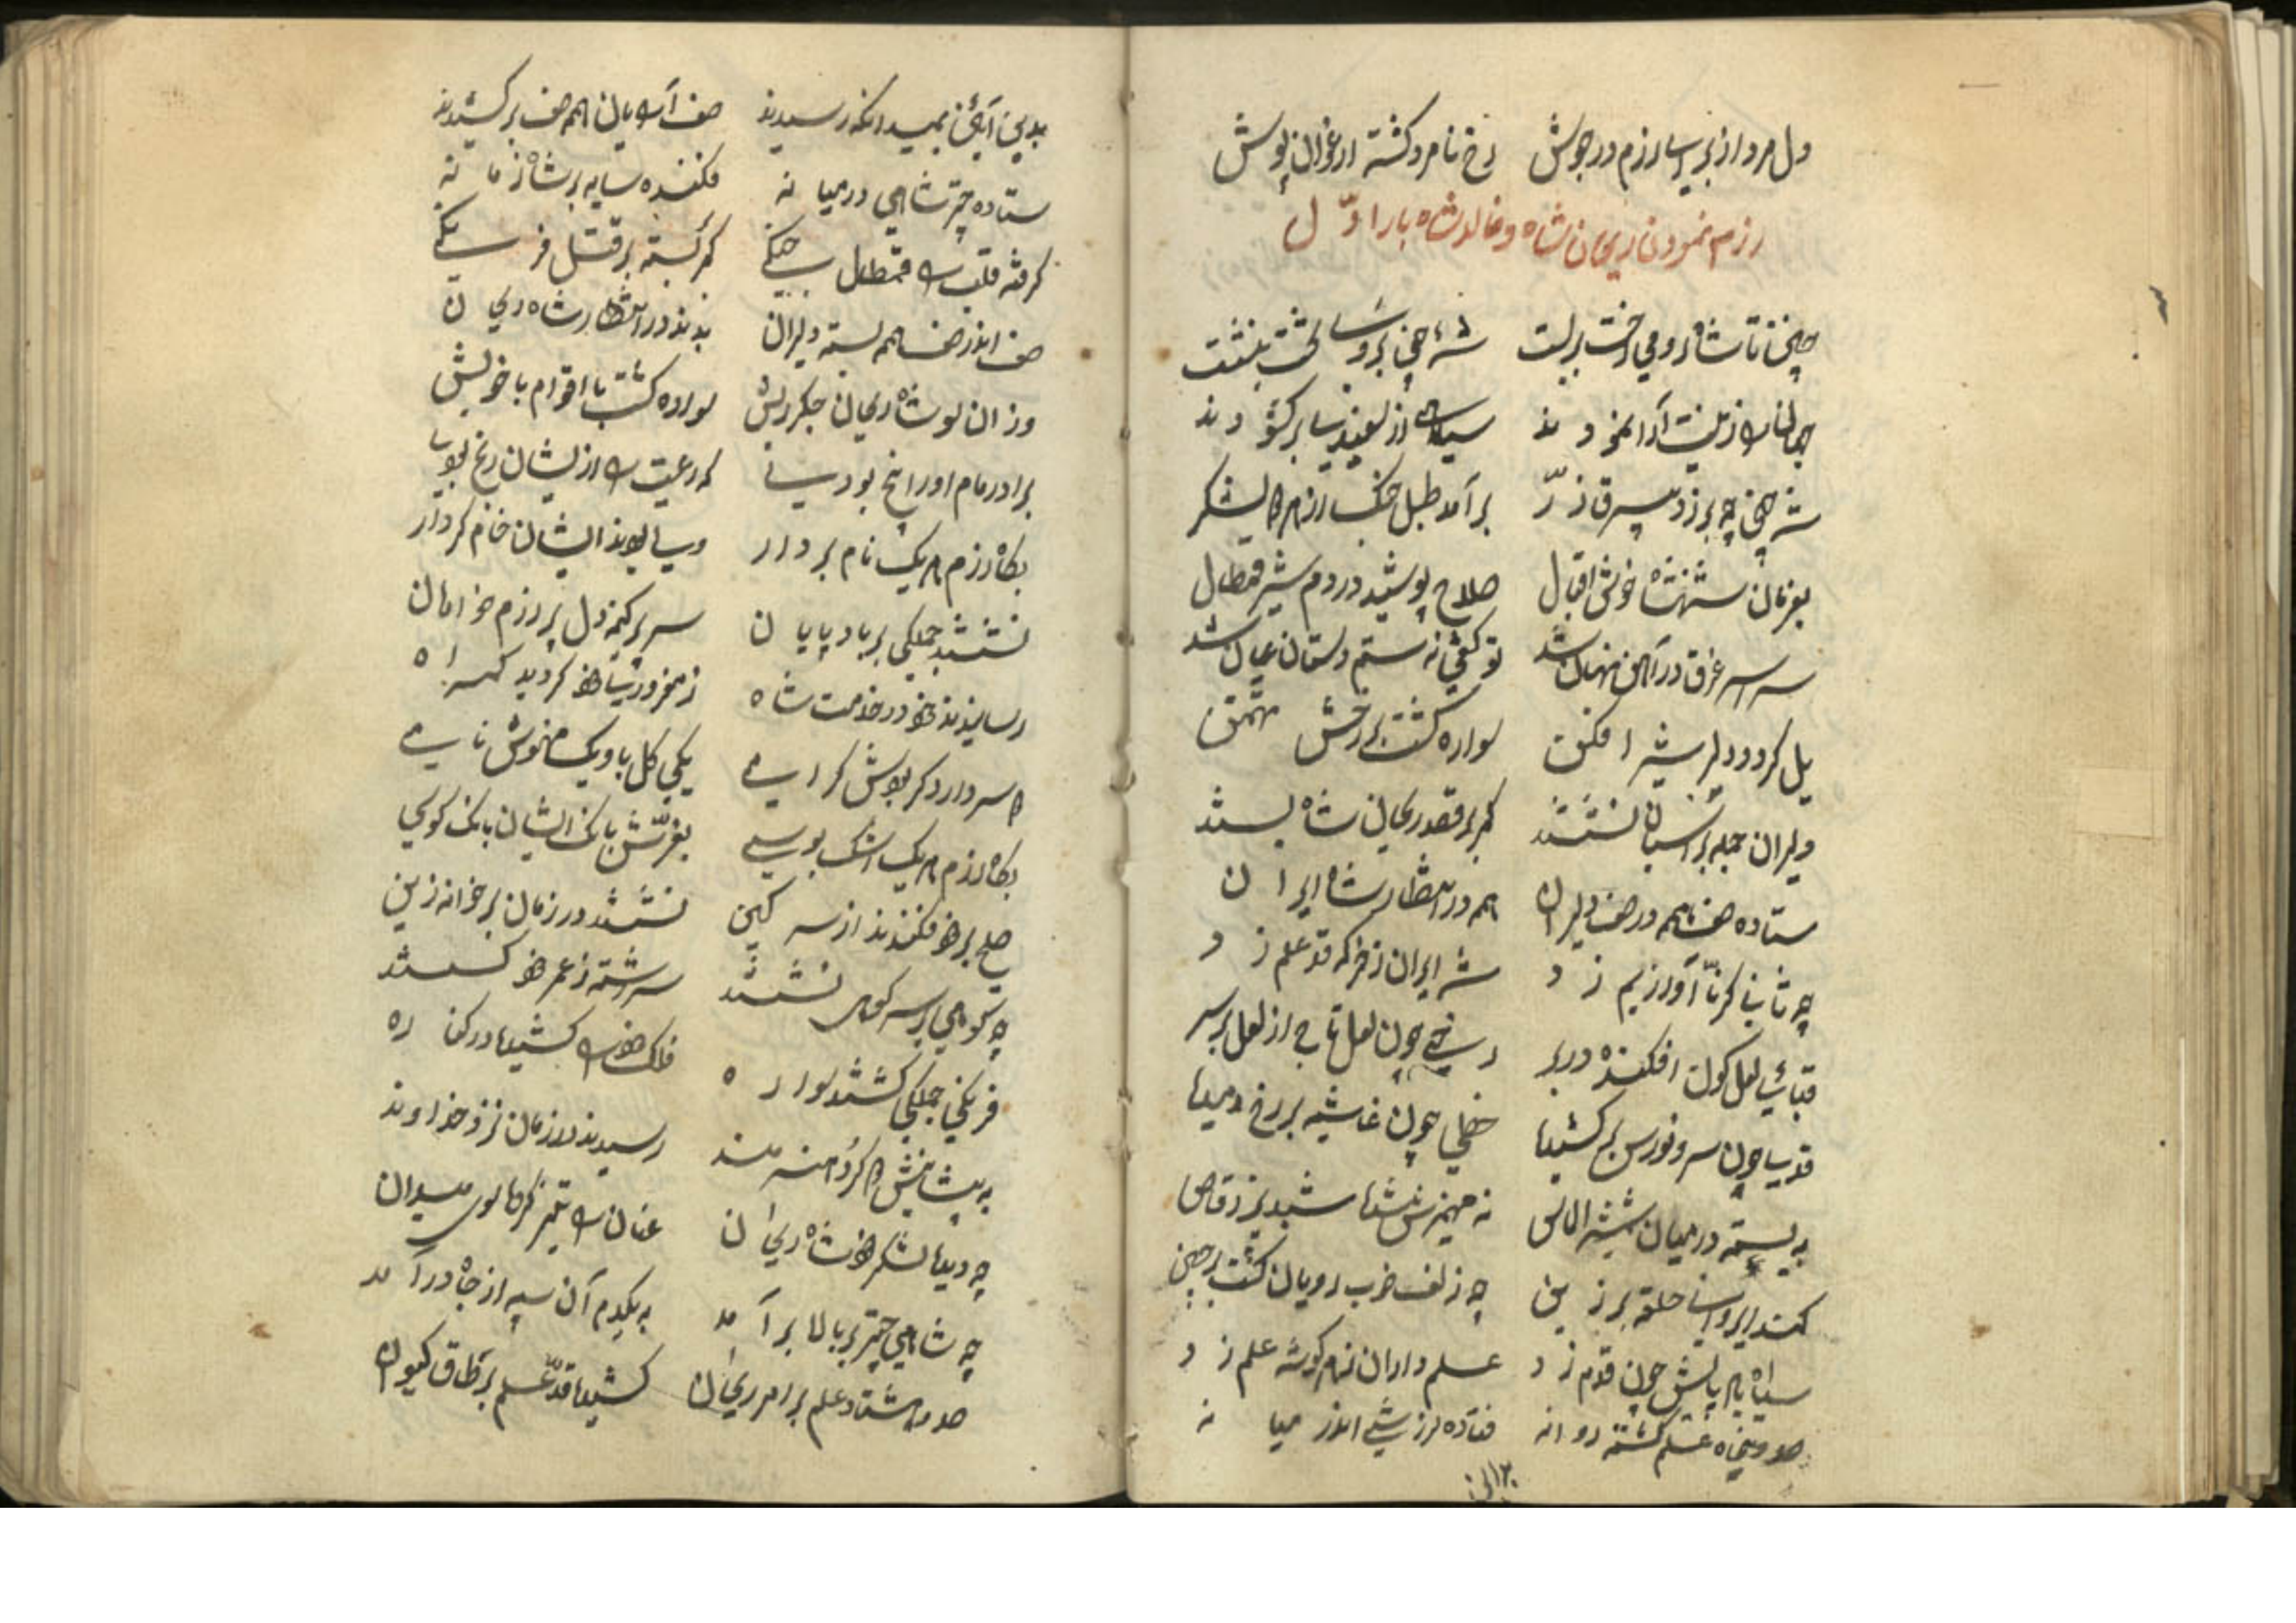 دل مرد از برای رزم در جوش رخ نامرد کشته ارغوان پوش
رزم نمودن ریحان شاه و خالد شاه بار اوّل
چنین تا شاه رومی رخت بربست شه چین بر تخت بنشست
جهان را زینت آرا نمودند سیاهی از سفیدی بر کشودند
شه چین چه برزد بیرق زر برآمد طبل جنک از هر دو لشکر
بفرمان شهنشاه خوش اقبال صلاح پوشید در دم شیر قمطال
سراسر غرق در آهن نهان شد تو کفتی نه ستم دستان عیان شد
یل کرد و دلیر شیر افکن سواره کشت بر رخش تهمتن
دلیران جمله بر اسبان نشستند کمر بر قصد ریحان شاه بستند
ستاده صف بهم در صف دلیران همه در انتظار شاه ایران
چه نائی کرنا آواز بم زد شه ایران ز خرکه قد علم زد
قبائی لعل کون افکنده در بر رخی چون لعل تاجی از لعل بر سر
قدی چون سرو نورس برکشیده خطی چون غاشیه بر رخ دمیده
به بسته در میان شمشیر الماس به مهمیزش شده شبدیز رقاص
کمند ابروان حلقه بر زین چه زلف خوب رویان کشت پرچین
سپاه به پایش چون قدم زد علم داران بهر کوشه علم زد
دو پنجاه علم کشته روانه فتاده لرزشی اندر میانه
بدین آئین بمیدانکه رسیدند صف آرایان همه صف بر کشیدند
ستاده چتر شاهی در میانه فکنده سایه بر شاه زمانه
کرفته قلب را قمطال جنکی کمر بسته بر قتل فرنکی
صف اندر صف همه بسته دلیران بدند در انتظار شاه ریحان
وز آن سو شاه ریحان جکر ریش سواره کشت با اقوام با خویش
برادر مام او را پنج بودی که رعیت را از ایشان رنج بودی
بکاه رزم هر یک نام بردار ولی بودند ایشان خام کردار
نشستند جملکی بر بادپایان سر پر کینه دل پر رزم خرامان
رسانیدند خود در خدمت شاه ز مغروری خود کردید کمراه
که سر دارد کر بوش کرانی یکی کل با و یک خوش نائی
بکاه رزم هر یک اشک بوسی بغرّش بانک ایشان بانک کوسی
صلح بر خود فکندند از سر کین نشستند در زمان بر خانه زین
چه کوهی بر سر کوهی نشستند سر رشته ز عمر خود کسستند
فرنکی جملکی کشتند سواره فلک خود را کشیده در کناره
به پیشاپیش هر کرد هنرمند رسیدند در زمان نزد خداوند
چه دیده لشکر خود شاه ریحان عنان را تیز کرده سوی میدان
چه شاهی چتر بر بالا برآمد به یکدم آن سپه از جاه در آمد
دو هشتاد علم بر امر ریحان کشیده قد علم بر طاق کیوان